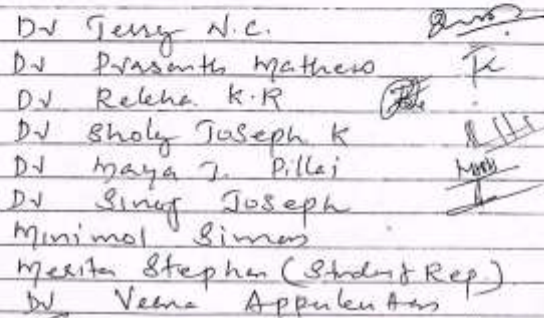 Dr Jerry N.C.
Dr Prasanth Mathew
Dr Rekha K.R
Dr Sholy Joseph K
Dr Maya J. Pillai
Dr Sinoj Joseph
Minimol Simon
Merita Stephen (Student Rep.)
Dr Veena Appukuttan